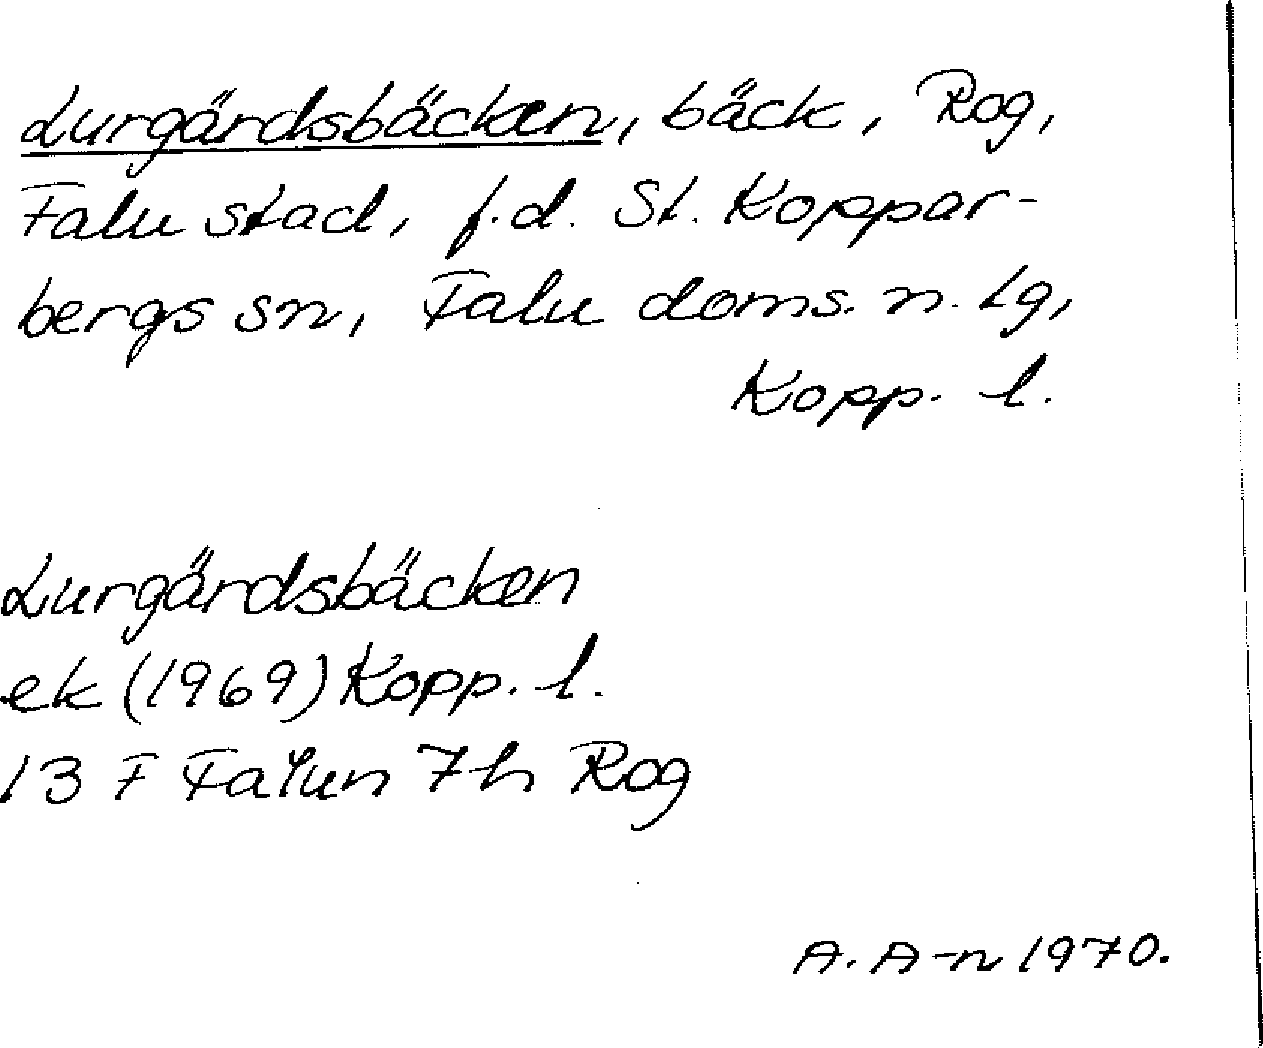 Lurgärdsbäcken, bäck, Rog,
Falu stad, f.d. St. Koppar-
bergs sn, Falu doms. n. tg,
Kopp. l.
Lurgärdsbäcken
ek (1969) Kopp. l.
13 F Falun 7h Rog
A. A-n 1970.